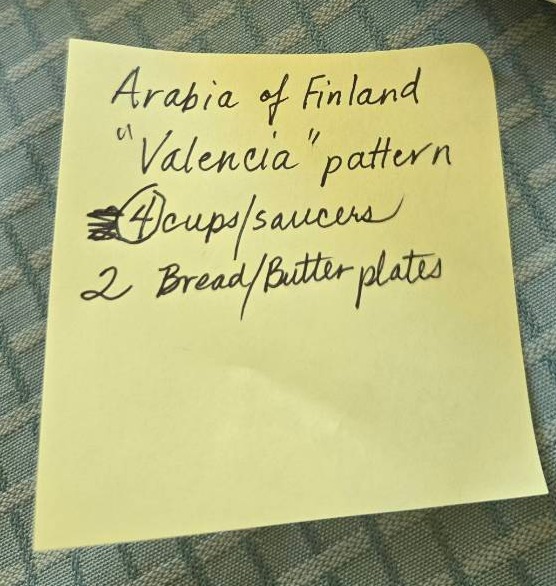 Arabia of Finland
"Valencia" pattern
4 cups/saucers
2 Bread/Butter plates